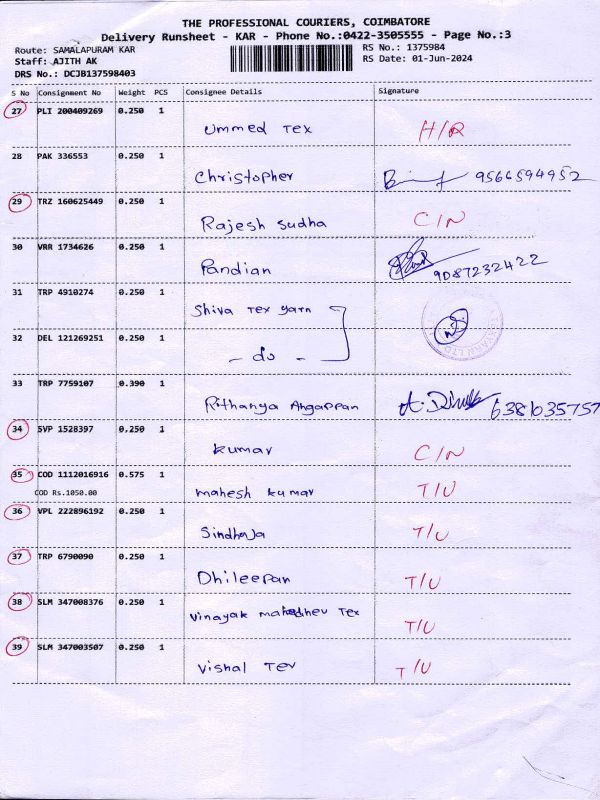 THE PROFESSIONAL COURIERS, COIMBATORE
Delivery Runsheet - KAR - Phone No.:0422-3505555 - Page No.:3
Route: SAMALAPURAM KAR
RS No.: 1375984
Staff: AJITH AK
RS Date: 01-Jun-2024
DRS No.: DCJB137598403
S No Consignment No Weight PCS Consignee Details Signature
27 PLI 200409269 0.250 1
Ummed Tex H/R
28 PAK 336553 0.250 1
Christopher 9566594952
29 TRZ 160625449 0.250 1
Rajesh Sudha C/N
30 VRR 1734626 0.250 1
Pandian 9087232422
31 TRP 4910274 0.250 1
Shiva Tex yarn
32 DEL 121269251 0.250 1
- do -
33 TRP 7759107 0.390 1
Rithanya Angappan 6381035757
34 SVP 1528397 0.250 1
Kumar C/N
35 COD 1112016916 0.575 1
COD Rs.1050.00
mahesh kumar T/U
36 VPL 222896192 0.250 1
Sindhuja T/U
37 TRP 6790090 0.250 1
Dhileepan T/U
38 SLM 347008376 0.250 1
Vinayak mahadhev Tex T/U
39 SLM 347003507 0.250 1
Vishal Tex T/U